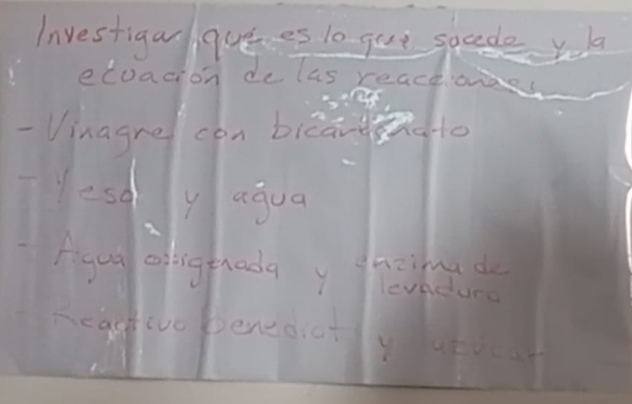 Investigar qué es lo que sucede y la
ecuación de las reacciones
- Vinagre con bicarbonato
- Yeso y agua
- Agua oxigenada y enzima de
levadura
- Reactivo benedict y azucar